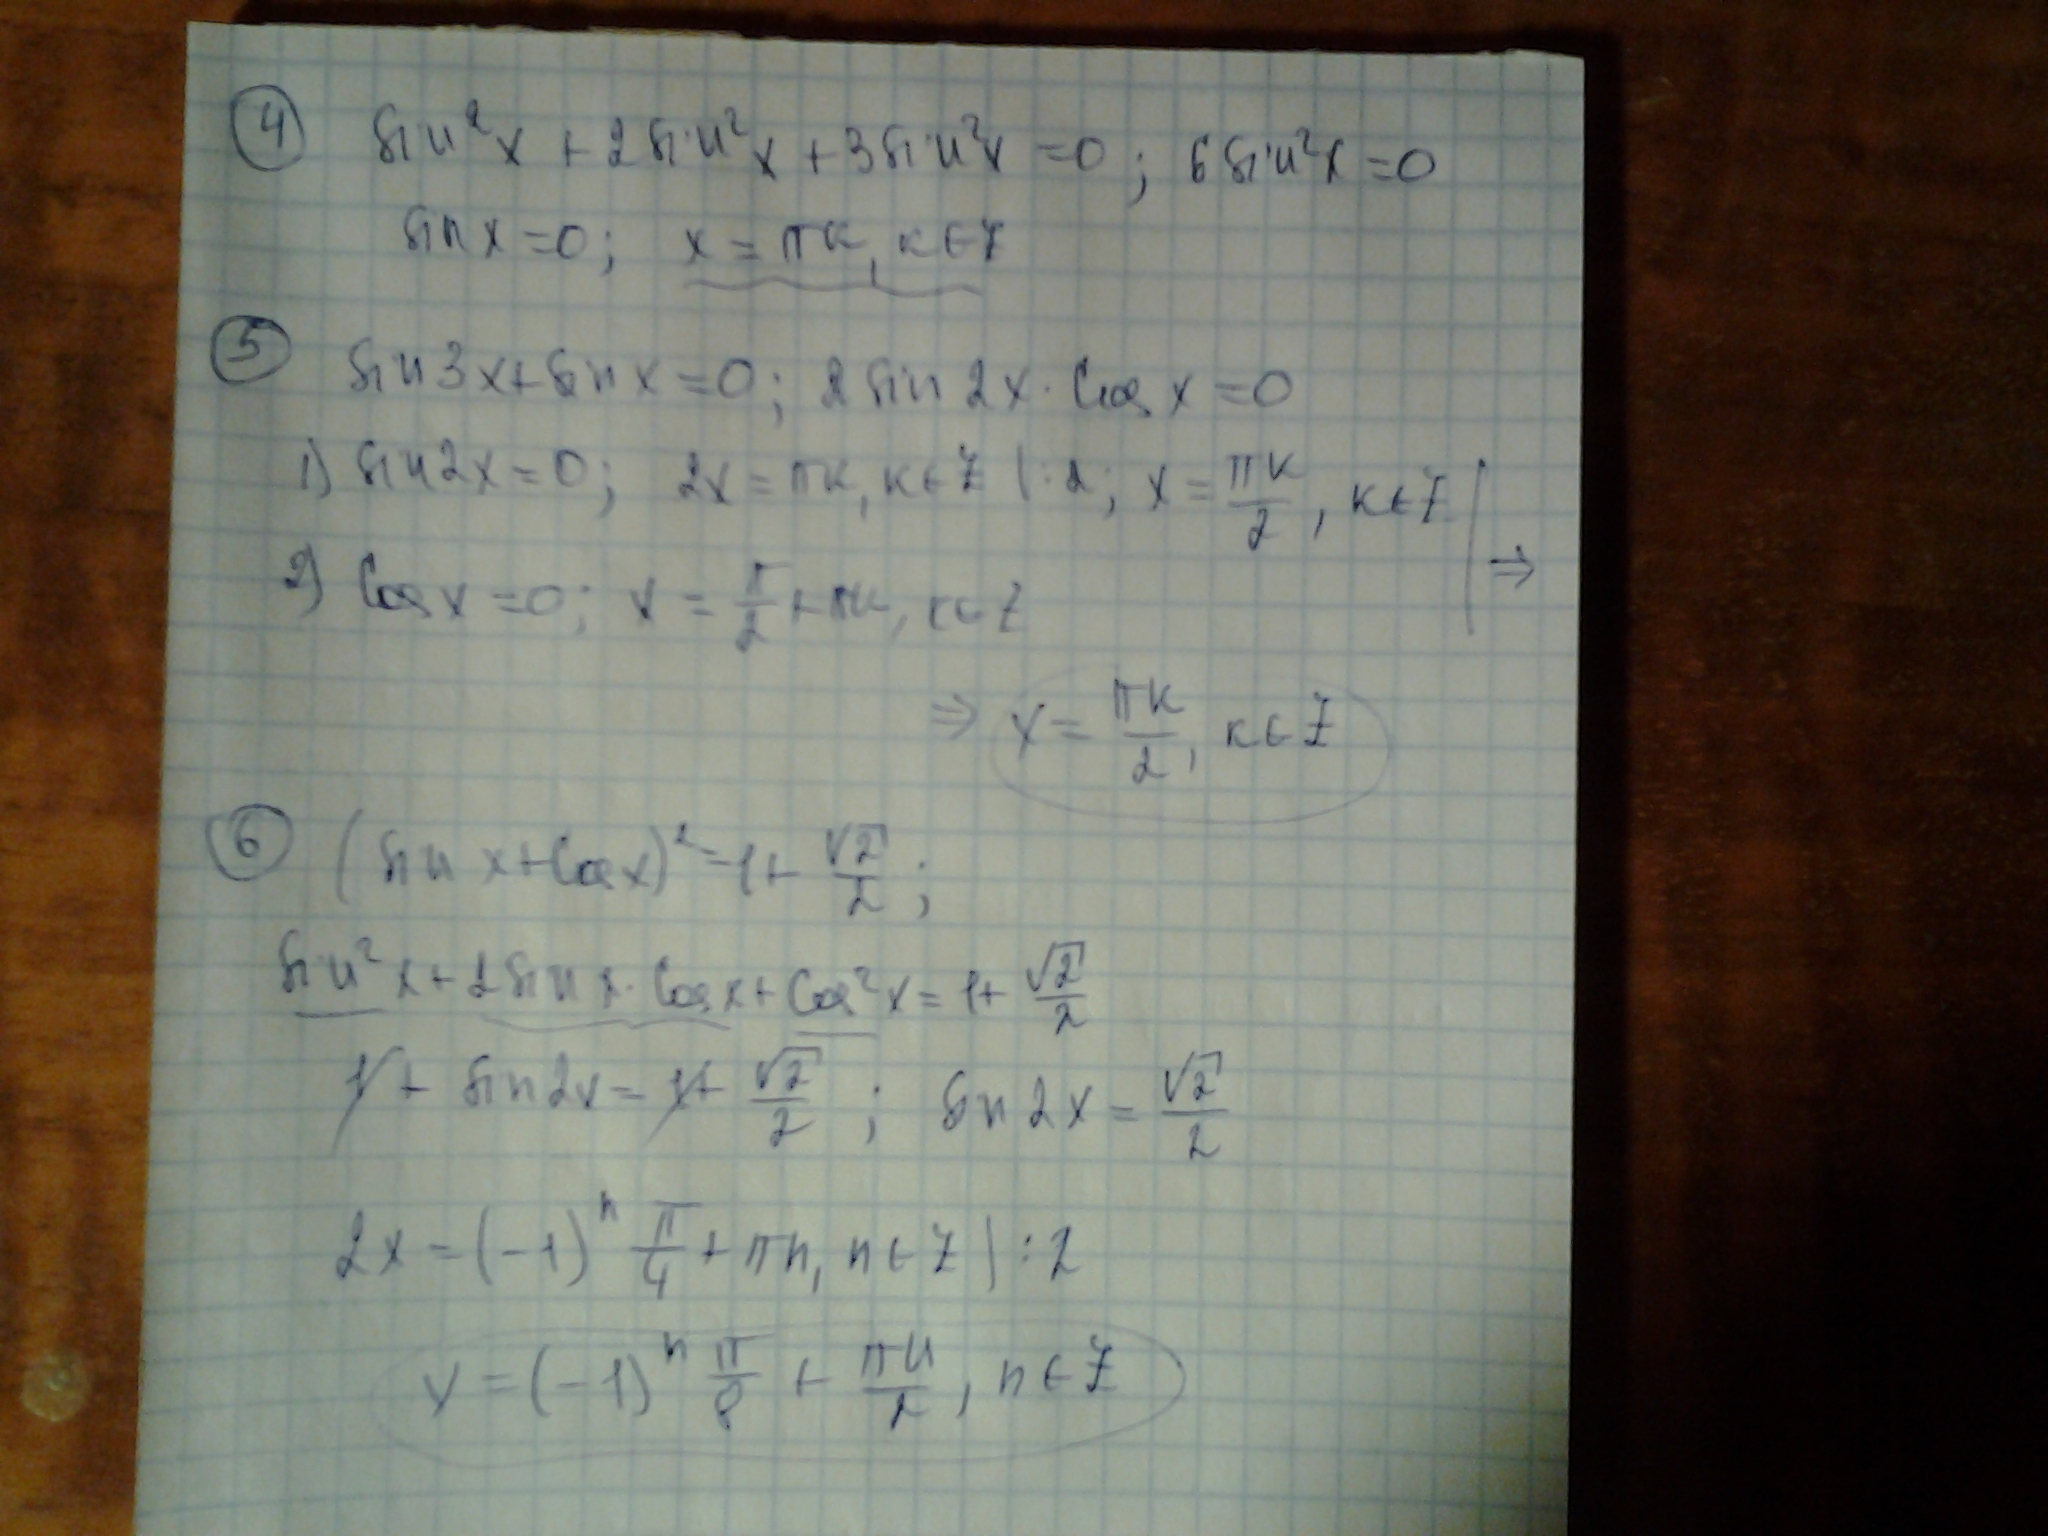 ④ sin²x + 2sin²x + 3sin²x = 0; 6sin²x = 0
sin x = 0; x = πk, k∈Z
⑤ sin3x + sin x = 0; 2 sin 2x · cos x = 0
1) sin2x = 0; 2x = πk, k∈Z |:2; x = πk/2, k∈Z
2) cos x = 0; x = π/2 + πk, k∈Z | ⇒
⇒ x = πk/2, k∈Z
⑥ (sin x + cos x)² = 1 + √2/2;
sin²x + 2sin x · cos x + cos²x = 1 + √2/2
1 + sin2x = 1 + √2/2; sin 2x = √2/2
2x = (-1)ⁿ π/4 + πn, n∈Z |:2
x = (-1)ⁿ π/8 + πn/2, n∈Z